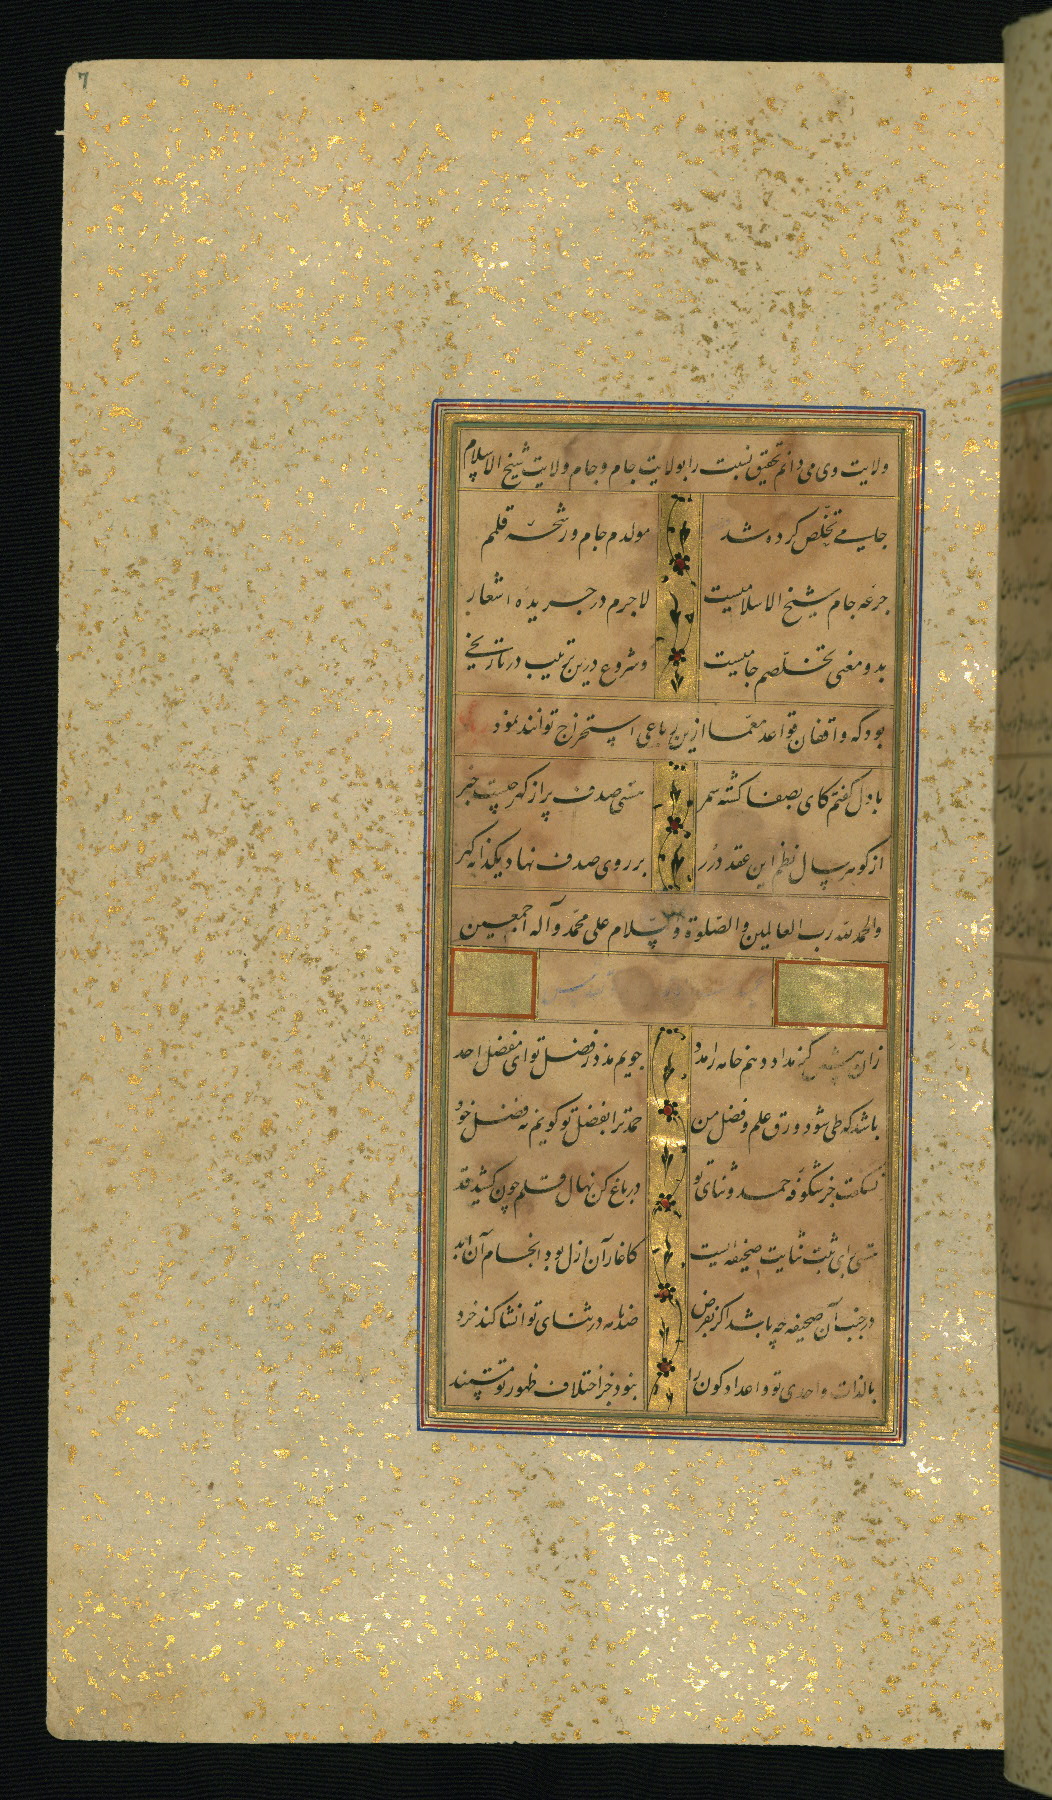 7
ولایت وی می دانم تحقیق نسبت را بولایت جام و جام ولایت شیخ الاسلام
جامی تخلّص کرده شد مولدم جام و رشحهٔ قلمم
جرعه جام شیخ الاسلامیست لاجرم در جریده اشعار
بدو معنی تخلّصم جامیست و شروع درین ترتیب در تاریخی
بود که واقفان قواعد معمّا ازین رباعی استخراج توانند نمود
با دل گفتم کای بصفا گشته سمر مشتی صدف پر از گهر چیست خبر
از گوهر سال نظم این عقد دُرر بر روی صدف نهاد یکدانه گهر
والحمد لله رب العالمین والصّلوة والسّلام علی محمّد وآله اجمعین
زان پیش کز مداد دهم خامه را مدد جویم مدد ز فضل تو ای مفضل احد
باشد که طی شود ورق علم و فضل من حمد ترا بفضل تو گویم نه فضل خود
نشکفت جز شکوفه حمد و ثنای تو در باغ کن نهال قلم چون کشید قد
هستی برای ثبت ثنایت صحیفه ایست کاغاز آن ازل بود انجام آن ابد
در جنب آن صحیفه چه باشد اگر بفرض صد نامه در ثنای تو انشا کند خرد
بالذات واحدی تو و اعداد کون را نبود جز اختلاف ظهور تو مستند